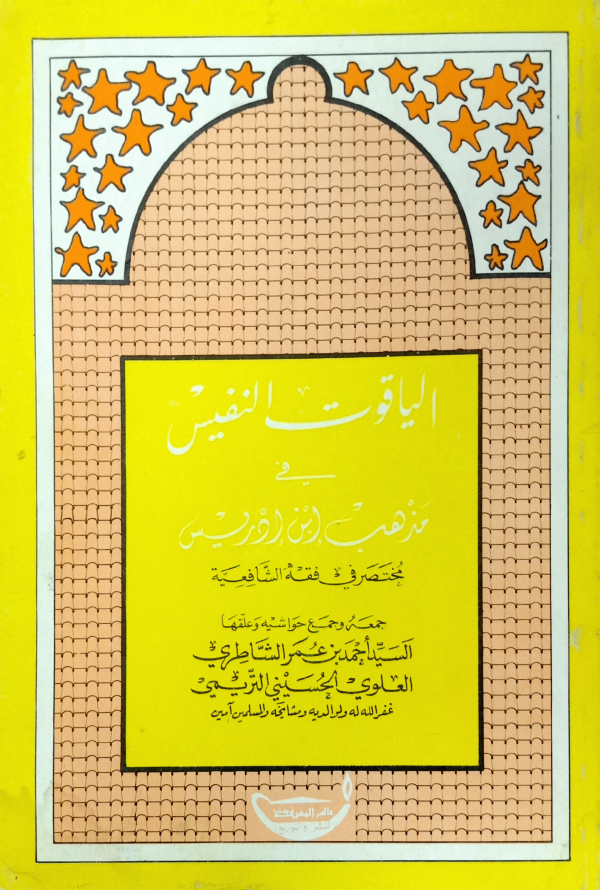 الياقوت النفيس
في
مَذهَبْ ابْن إدْريس
مُختَصَر في فقه الشَّافِعِيَّة
جمعهُ وجمَع حَوَاشيه وَعَلّقها
السَيِّد أحْمَد بن عُمَر الشَّاطِري
العلوي الحُسَيْني التّريْمِيّ
غفر الله له ولوالديه ومشايخه والمسلمين آمين
عالم المعرفة
للنشر والتوزيع